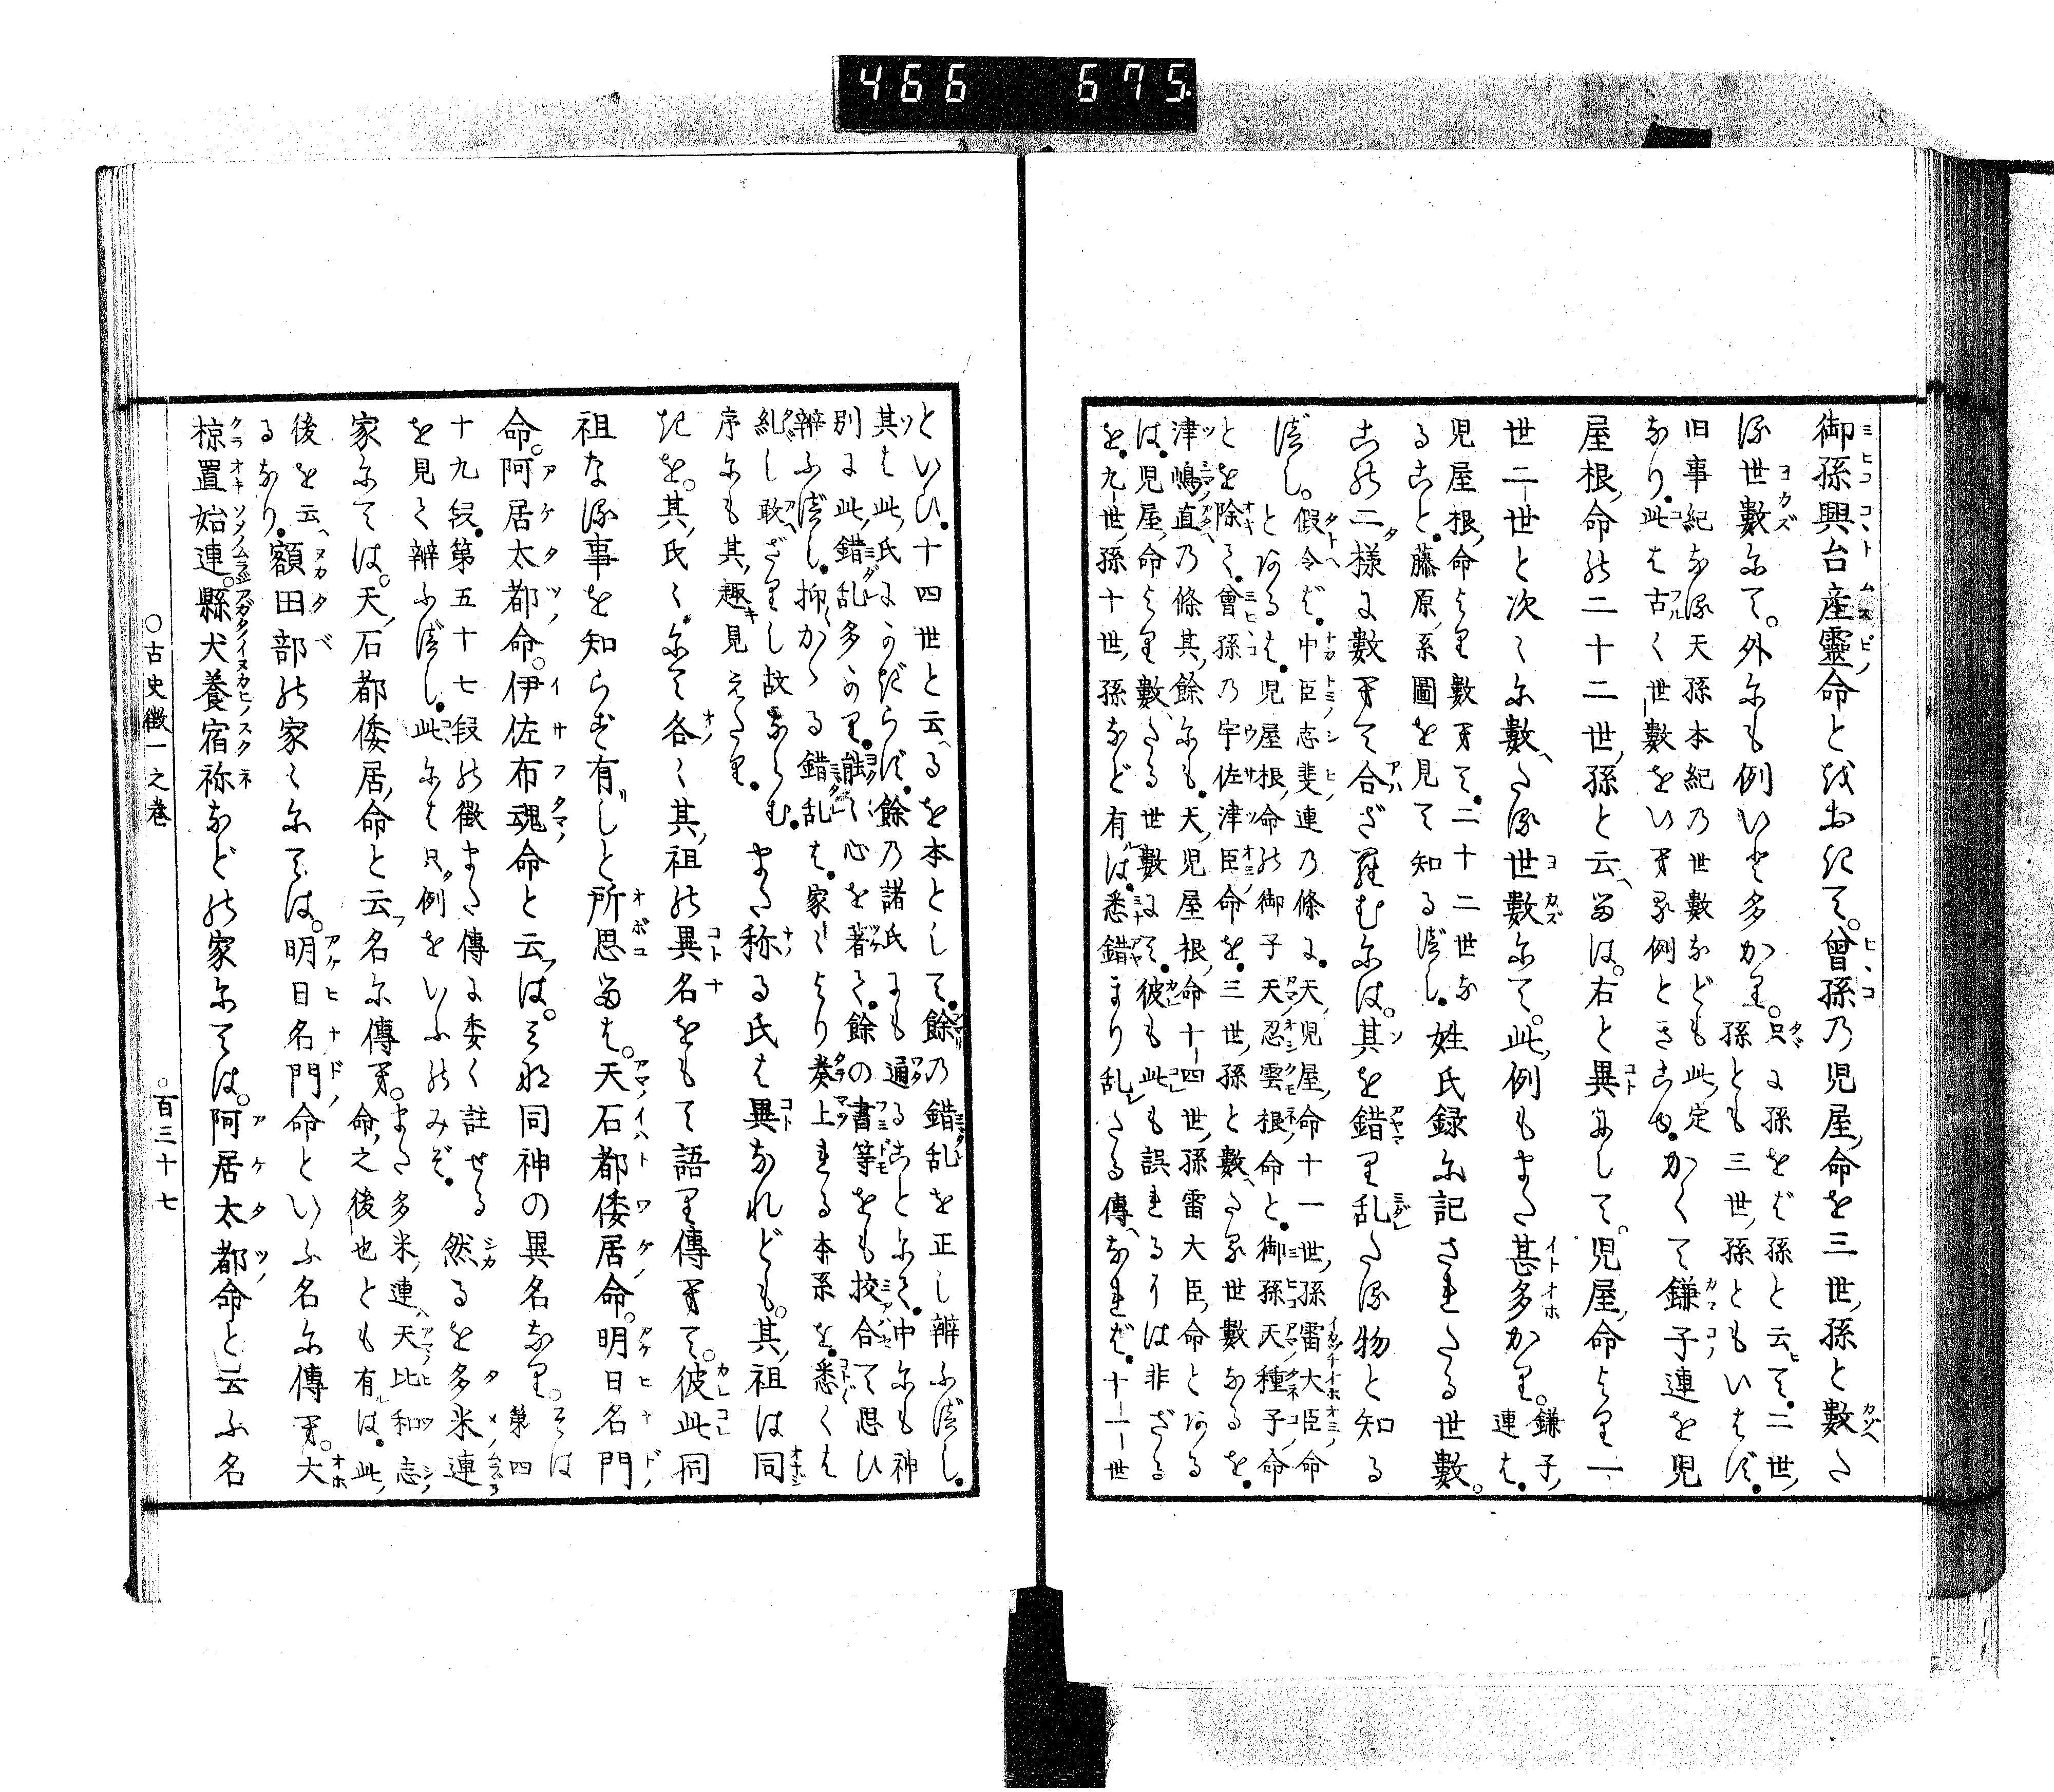 466 675.
御孫興台産靈命とはおきて。曾孫乃児屋命を三世孫と數へた
る世數にて。外にも例いと多かり。只に孫をば孫と云ひて。二世
孫とも三世孫ともいはず。
旧事紀なる天孫本紀乃世數なども此定
なり。此は古く世數をいへる例ときこゆ。かくて鎌子連を児
屋根命の二十二世孫と云へるは。右と異にして。児屋命より一
世二世と次々に數へたる世數にて。此例もまた甚多かり。鎌子
連は。
児屋根命より數へて。二十二世な
ること。藤原系圖を見て知るべし。姓氏録に記されたる世數。
この二様に數へて合ざらむには。其を錯り乱したる物と知る
べし。假令ば。中臣志斐連乃條に。天児屋命十一世孫雷大臣命
とあるは。児屋根命の御子天忍雲根命と。御孫天種子命
とを除きて。曾孫乃宇佐津臣命を。三世孫と數へたる世數なるを。
津嶋直乃條其餘にも。天児屋根命十四世孫雷大臣命とある
は。児屋命より數へたる世數にて。彼も此も誤れるには非ざる
を。九世孫十世孫など有るは。悉錯まり乱したる傳へなれば。十一世
といひ。十四世と云へるを本として。餘乃錯乱を正し辨ふべし。
其は此氏にのみならず。餘乃諸氏にも通ることにて。中にも神
別に此錯乱多かり。能く心を著て。餘の書等をも挍合て思ひ
辨ふべし。抑かゝる錯乱は。家々より奏上れる本系を。悉くは
糺し敢ざりし故ならむ。
序にも其趣見えたり。また称る氏は異なれども。其祖は同
きを。其氏々にて各々其祖の異名をもて語り傳へて。彼此同
祖なる事を知らず有しと所思るは。天石都倭居命。明日名門
命。阿居太都命。伊佐布魂命と云は。みな同神の異名なり。そは
第四
十九段。第五十七段の徴また傳に委く註せる
を見て辨ふべし。此には只例をいふのみぞ。然るを多米連
家にては。天石都倭居命と云名に傳へ。また多米連天比和志
命之後也とも有は。此
後を云へるなり。額田部の家々にては。明日名門命といふ名に傳へ。大
椋置始連。縣犬養宿祢などの家にては。阿居太都命と云ふ名
○古史徴一之巻
○百三十七